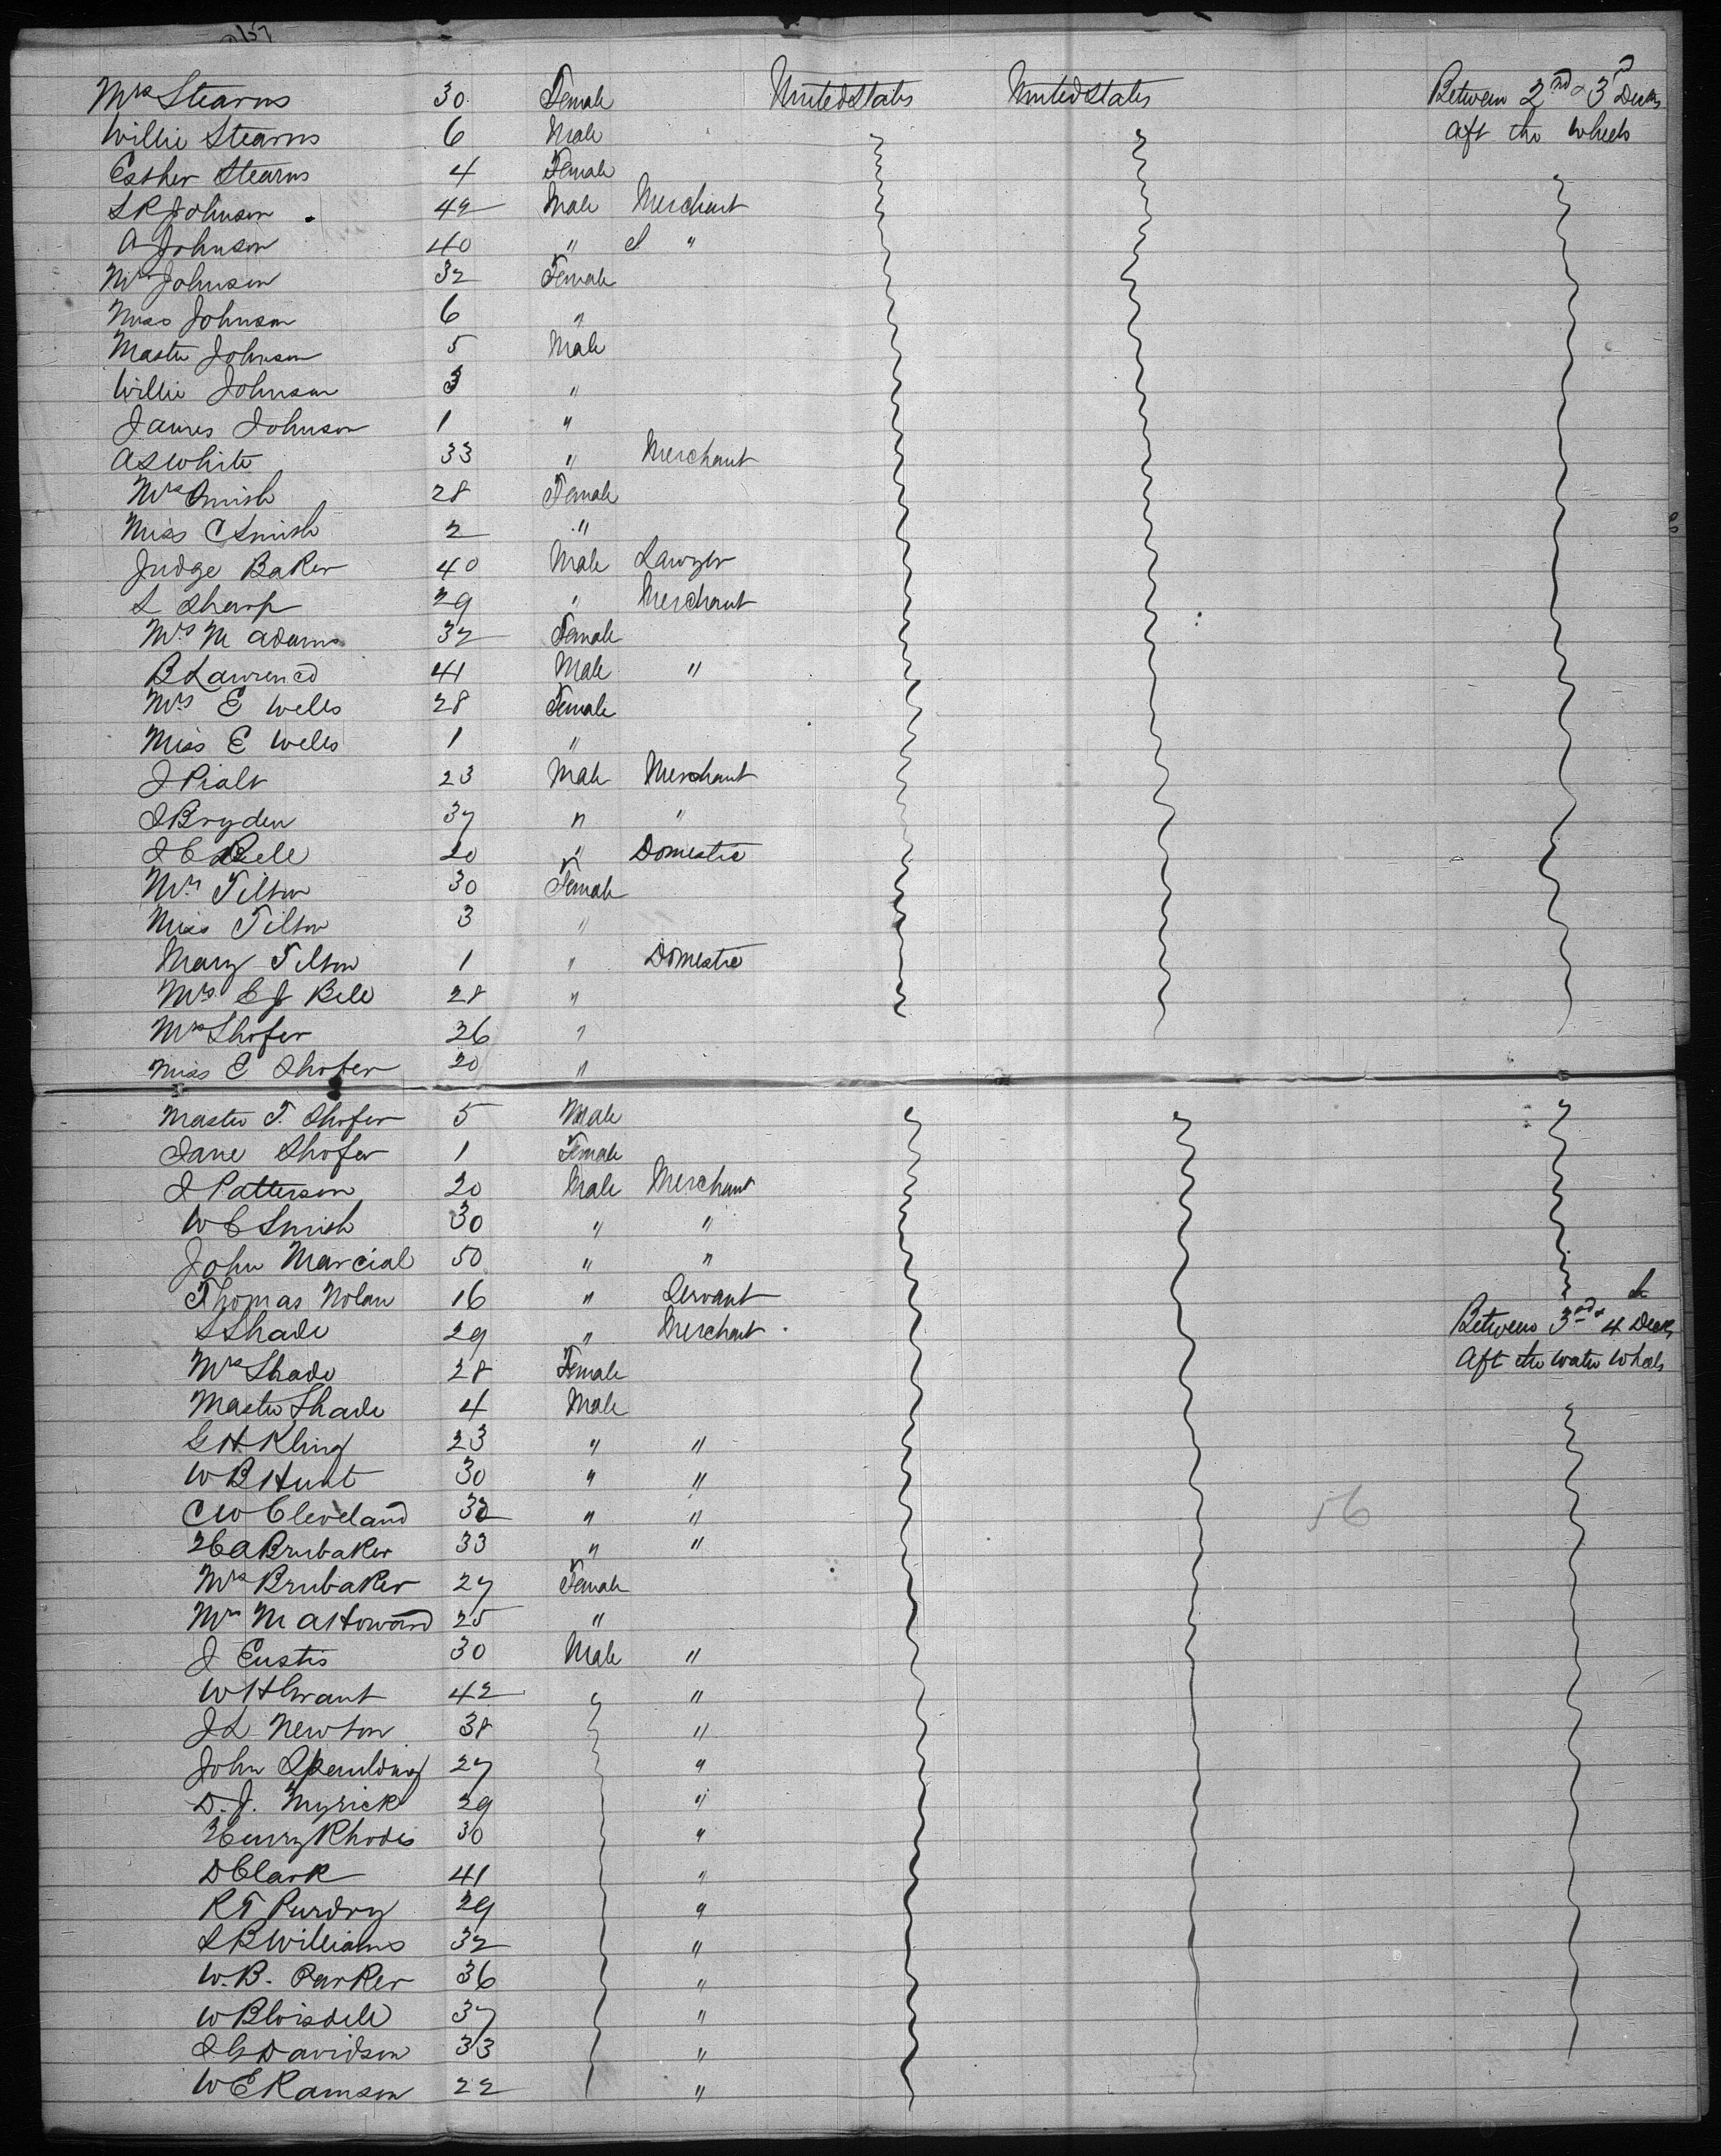 Mrs Stearns 30 Female United States United States Between 2nd & 3rd Decks
Willie Stearns 6 Male aft the Wheels
Esther Stearns 4 Female
S R Johnson 42 Male Merchant
A Johnson 40 " "
Mrs Johnson 32 Female
Miss Johnson 6 "
Master Johnson 5 Male
Willie Johnson 3 "
James Johnson 1 "
A S White 33 " Merchant
Mrs Smith 28 Female
Miss C Smith 2 "
Judge Baker 40 Male Lawyer
S Sharp 29 " Merchant
Mrs M Adams 32 Female
B Lawrence 41 Male "
Mrs E Wells 28 Female
Miss E Wells 1 "
J Piatt 23 Male Merchant
J Bryden 37 " "
J C Bell 20 " Domestic
Mrs Tilton 30 Female
Miss Tilton 3 "
Mary Tilton 1 " Domestic
Mrs C J Bell 28 "
Mrs Shofer 26 "
Miss E Shofer 20 "
Master T. Shofer 5 Male
Jane Shofer 1 Female
J Patterson 20 Male Merchant
W C Smith 30 " "
John Marcial 50 " "
Thomas Nolan 16 " Servant
S Shade 29 " Merchant Between 3rd & 4th Decks
Mrs Shade 28 Female Aft the water Wheels
Master Shade 4 Male
G H Kling 23 " "
W B Hunt 30 " "
C W Cleveland 32 " " 56
H A Brubaker 33 " "
Mrs Brubaker 27 Female
Mrs M A Howard 25 "
J Eustis 30 Male "
W H Grant 42 "
J L Newton 38 "
John Spaulding 27 "
D. J. Myrick 29 "
Henry Rhodes 30 "
D Clark 41 "
R T Purdry 29 "
S B Williams 32 "
W. B. Parker 36 "
W Bloisdell 37 "
J G Davidson 33 "
W E Ramson 22 "